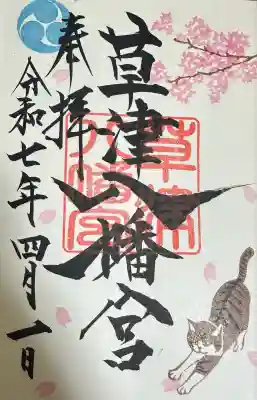 奉拝
草津八幡宮
草津八幡宮
令和七年 四月 一日